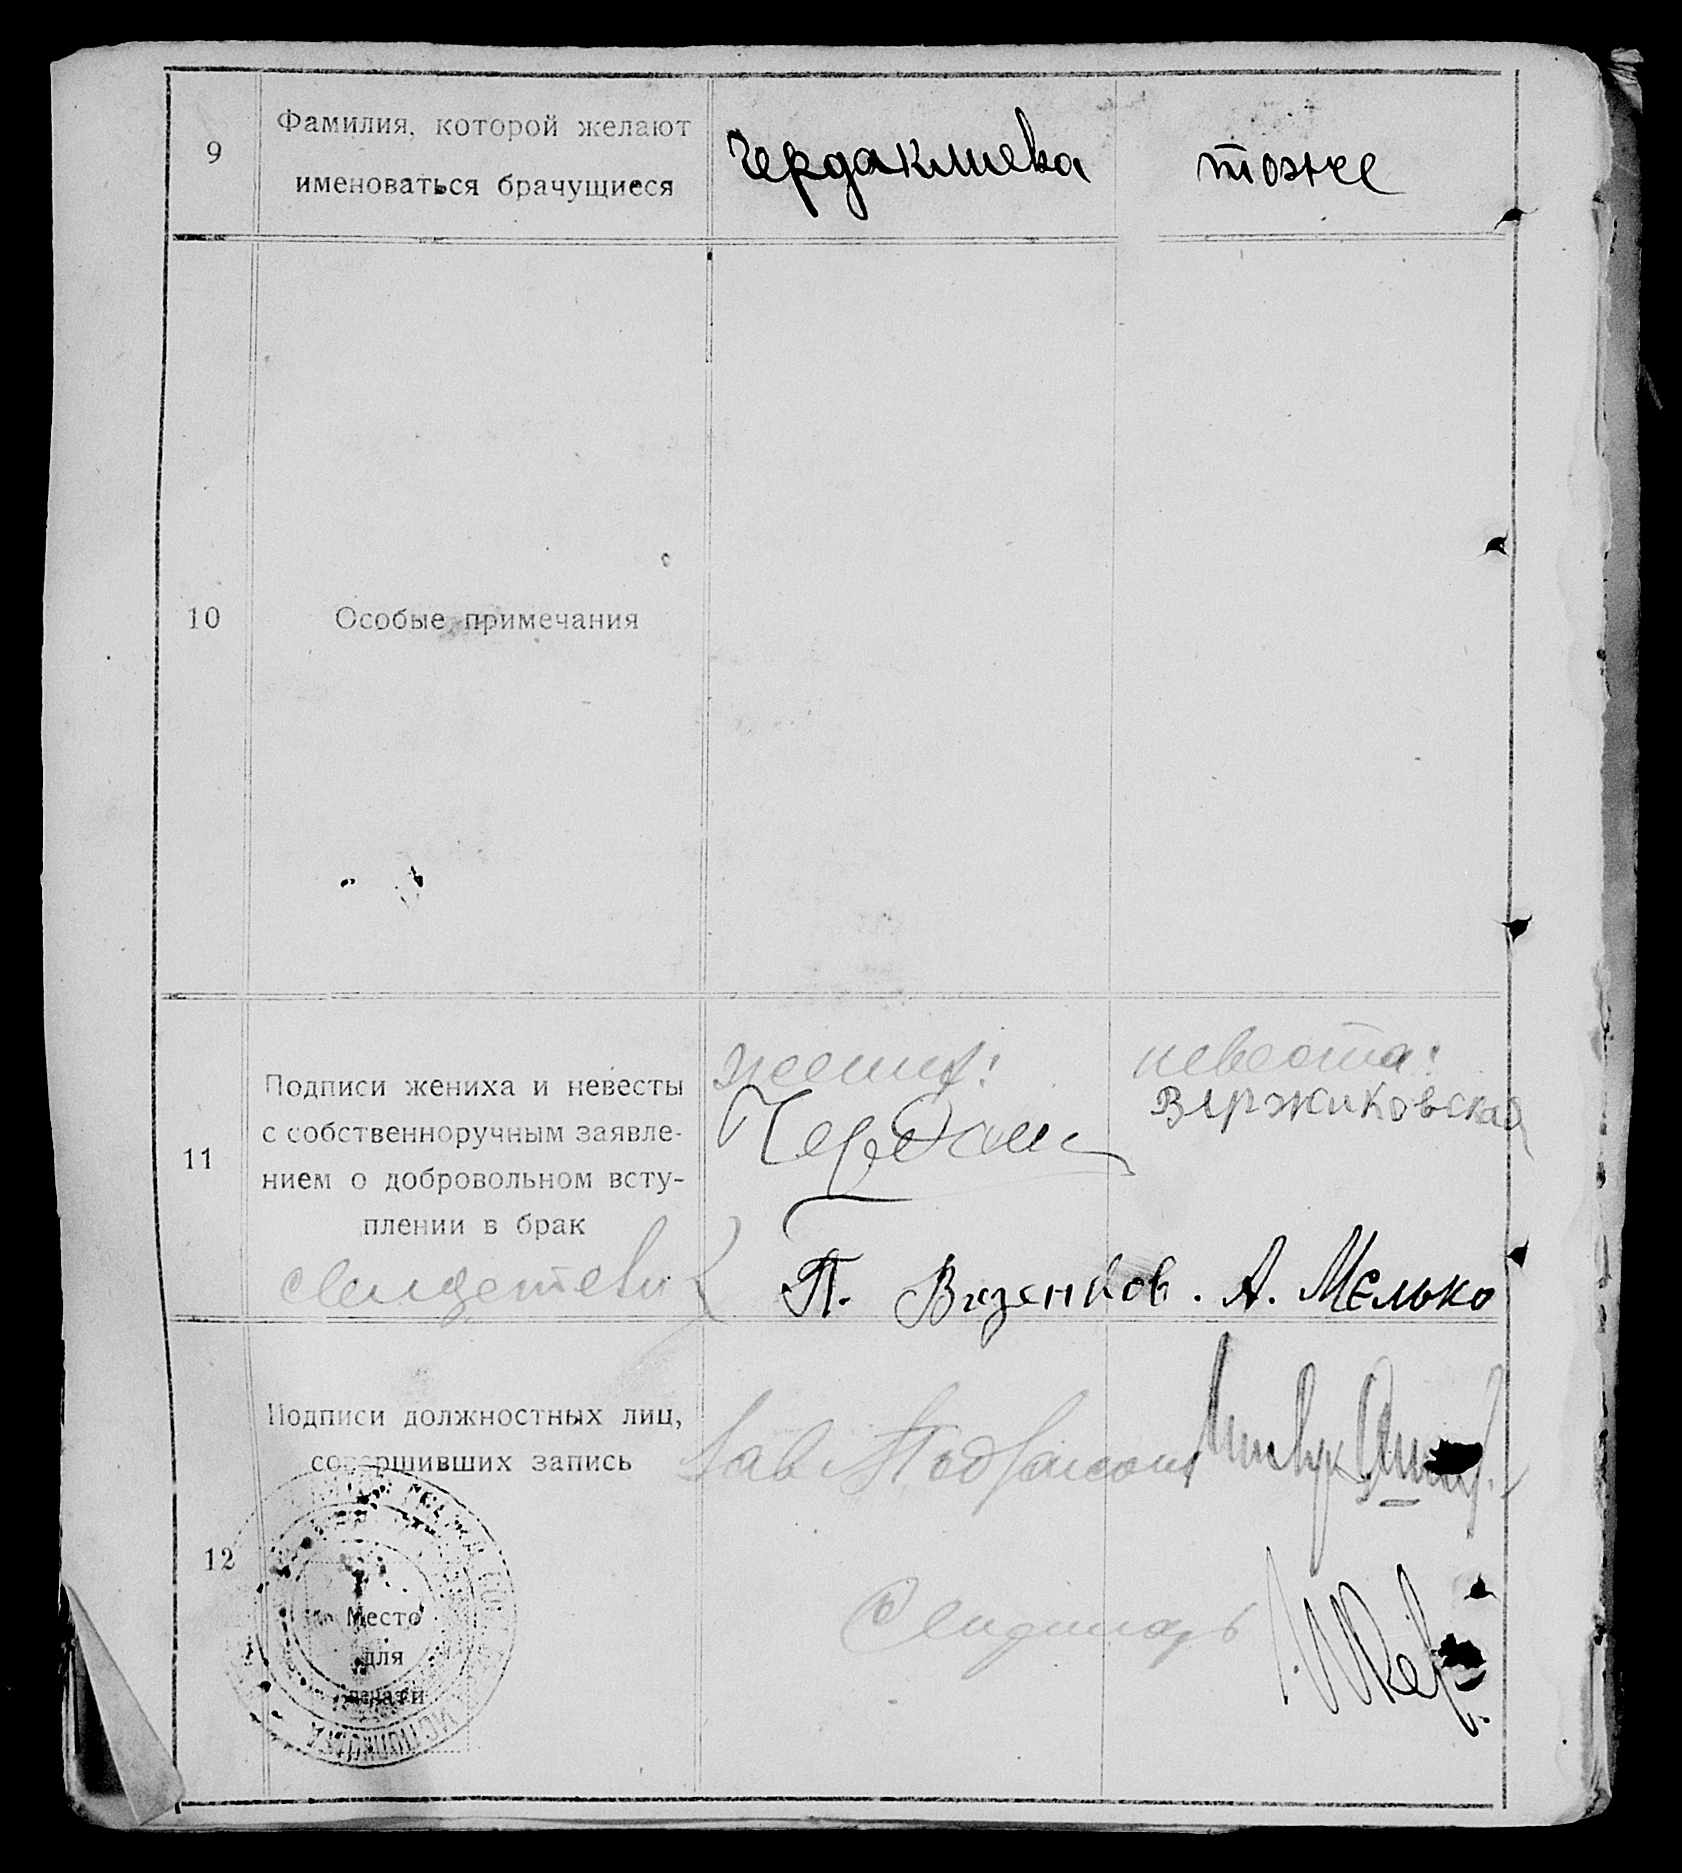 9
Фамилия, которой желают
именоваться брачущиеся
Чердаклиева
тоже
10
Особые примечания
11
Подписи жениха и невесты
с собственноручным заявле-
нием о добровольном всту-
плении в брак
жених:
невеста:
Вержиковская
свидетели
П. Вязенков. А. Мелько
12
Подписи должностных лиц,
совершивших запись
Зав
Место
для
печати